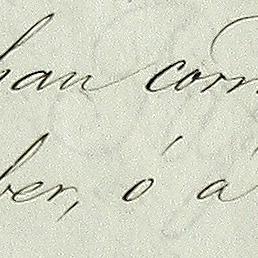 han com
ber, ó á